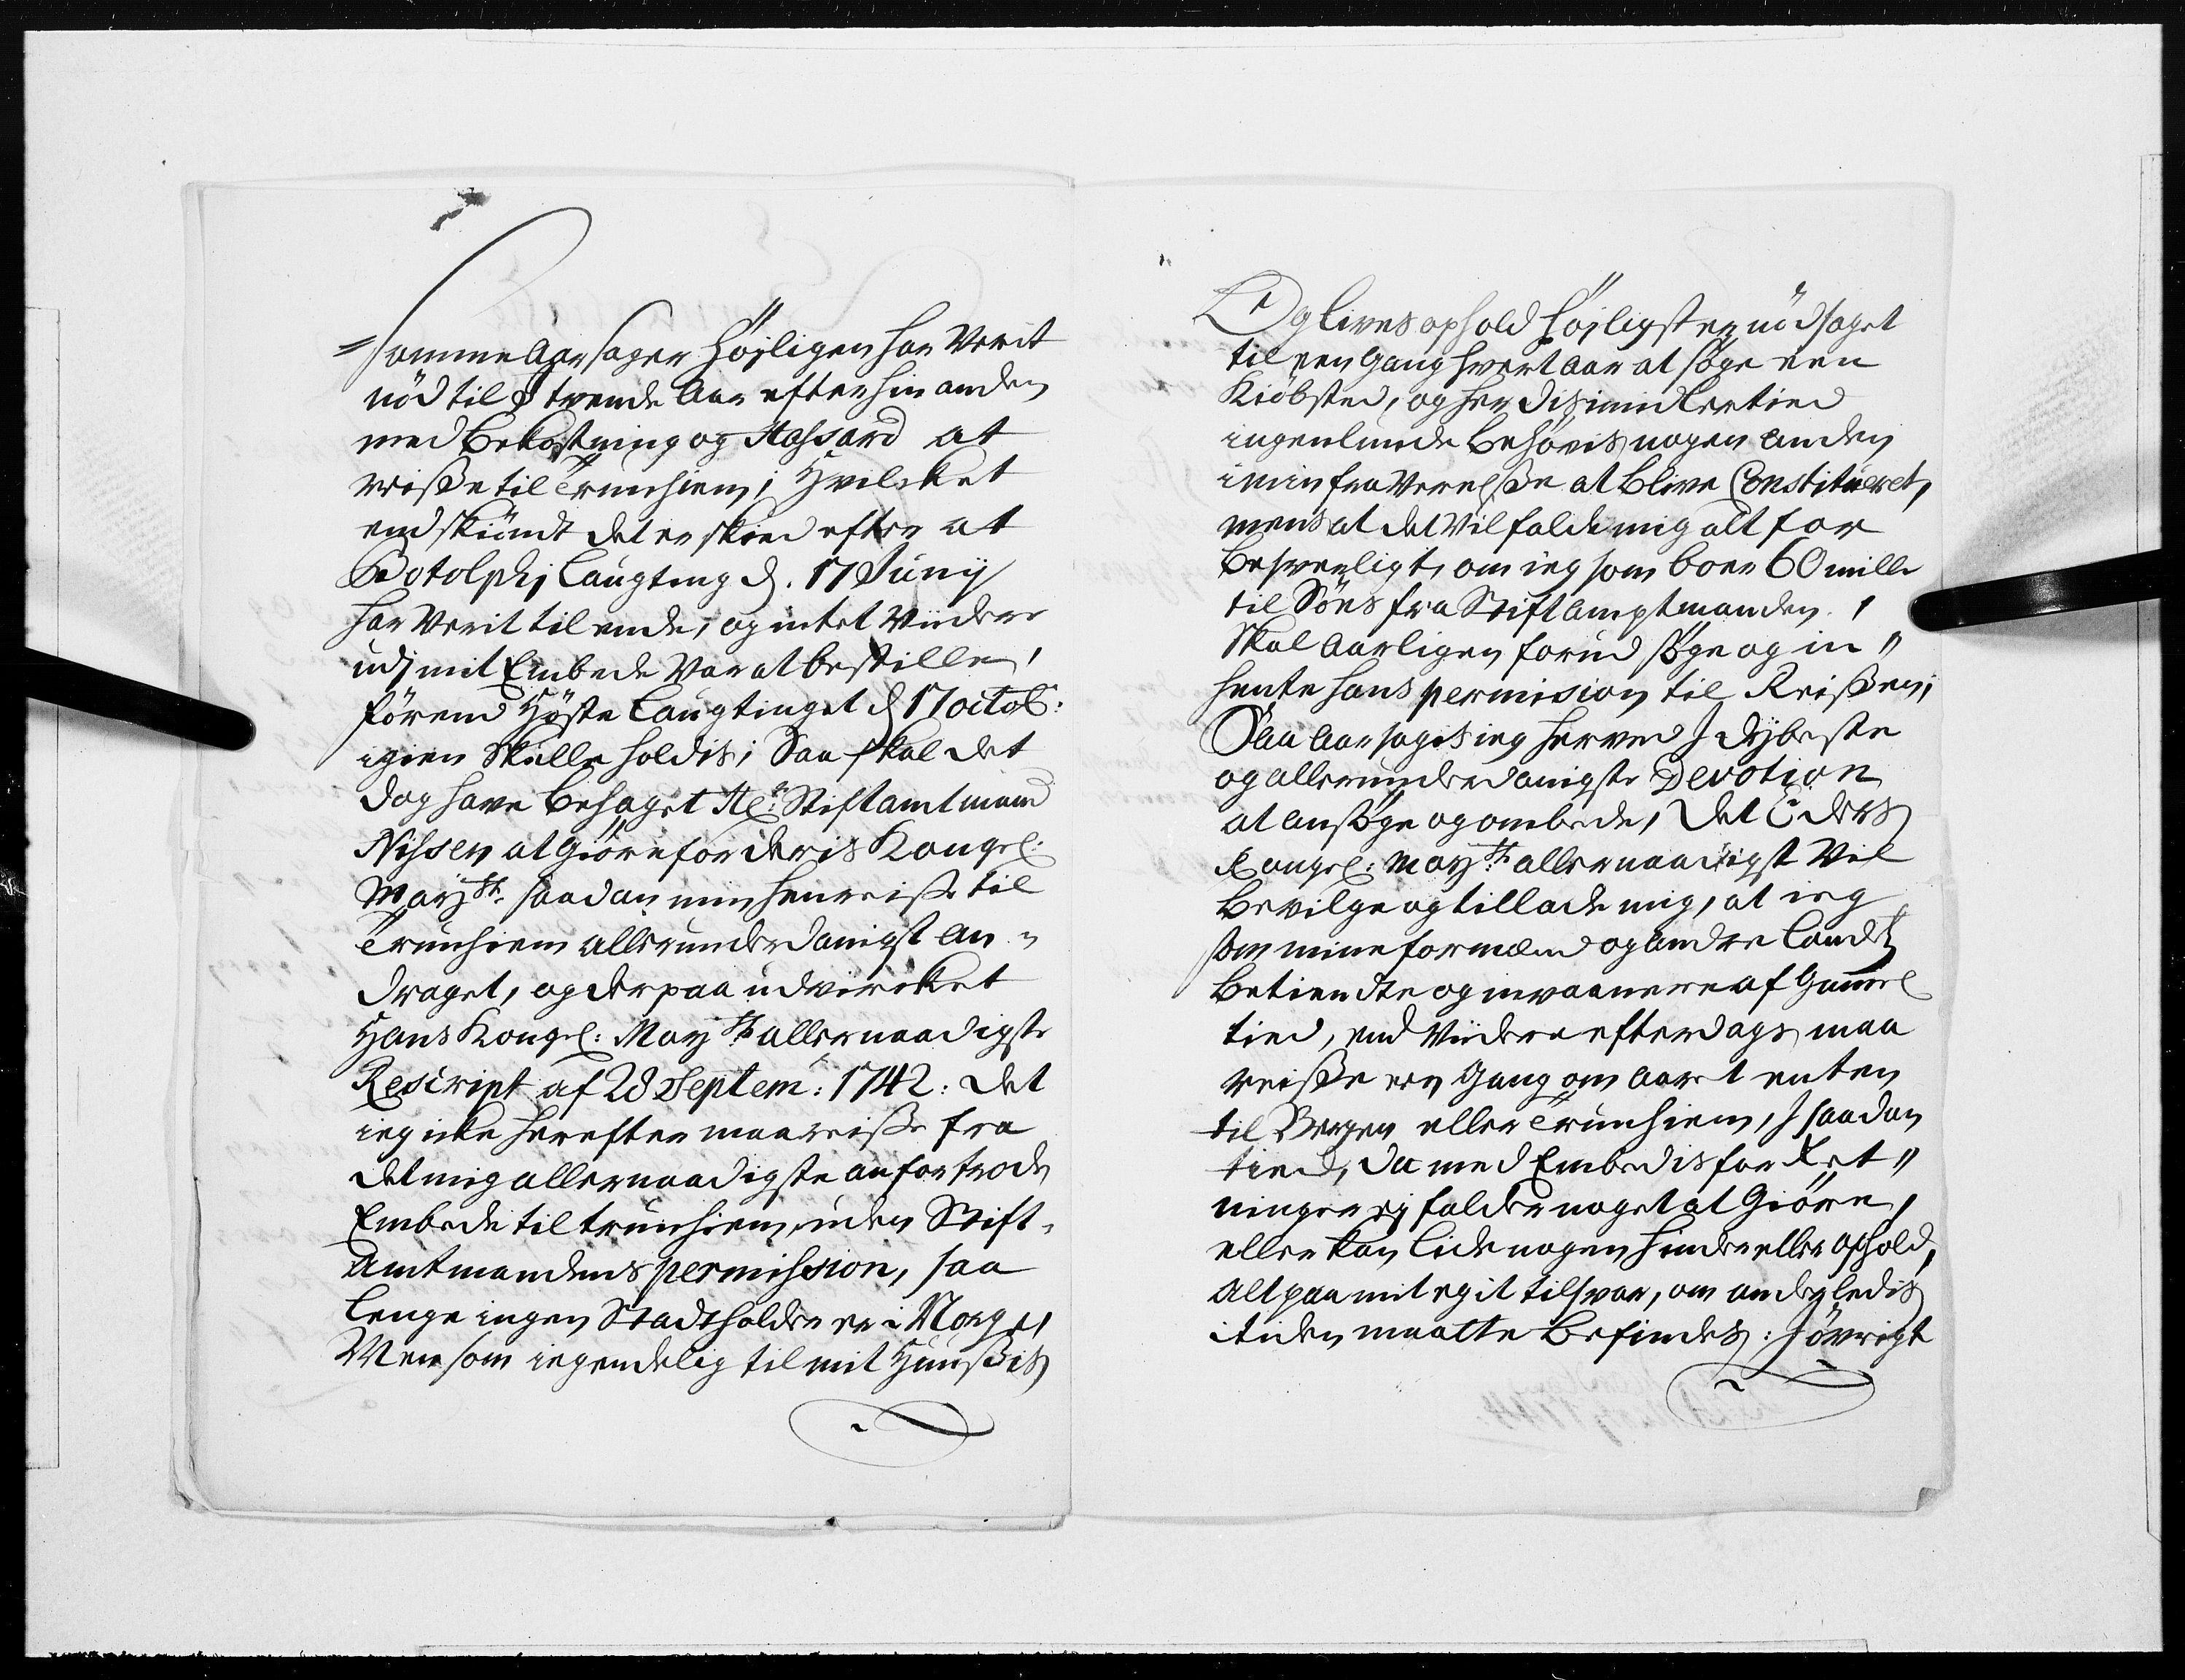 = samme Aarsager Højligen har Verit
nød til I tvende Aar efter hin anden
med Bekostning og Hassard at
reisse til Trunhiem; Hvilcket
endskiøndt det er skeed efter at
Botolphj Laugting d. 17 Junij
har Verit til ende, og intet Viidere
udj mit Embede Var at bestille,
førend Høste Laugtinget d 17 octob:
igien skulle holdis; Saa skal det
dog have behaget Hr: Stiftamtmand
Nissen at Giøre for deris Kongel:
Mayst: saadan min henreisse til
Trunhiem allerunderdanigst an-
draget, og derpaa udvircket
Hans Kongel: Mayst: allernaadigste
Rescript af 28 Septem: 1742: det
ieg icke herefter maa reisse fra
det mig allernaadigste anfortroede
Embede til trunhiem, uden Stift-
Amtmandens permission, saa
lenge ingen Stadtholder er i Norge,
Men som iegendelig til mit Huusis
Og Lives ophold højligst er nødsaget
til een Gang hvert Aar at søge een
Kiøbsted, og her dis imidlertied
ingenlunde behøvis nogen anden
i min fraVerelsse at blive Constitueret,
mens at det Vil falde mig alt for
besverligt, om ieg som boer 60 mille
til Søes fra Stiftamptmanden,
Skal Aarligen forud søge og in"
hente hans permision til Reissen;
Saa Aarsagis ieg herved J dybeste
og allerunderdanigste Devotion
at ansøge og ombede, det Eders
Kongel: Mayst: allernaadigst Vil
Bevilge og tillade mig, at ieg
som mine formænd og andre Landets
Betiendte og invaanere af Gammel
tied, end Viidere efterdags maa
reisse een Gang om Aaret enten
til Bergen eller Trunhiem, J saadan
tied, da med Embedis forRet"
ninger ej falder noget at Giøre,
eller kan Lide nogen hinder eller ophold,
alt paa mit egit tilsvar, om anderledis
i tiden maatte befindes: J øvrigt